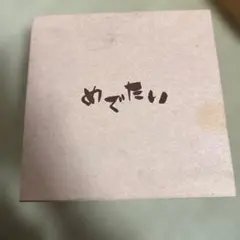 めでたい